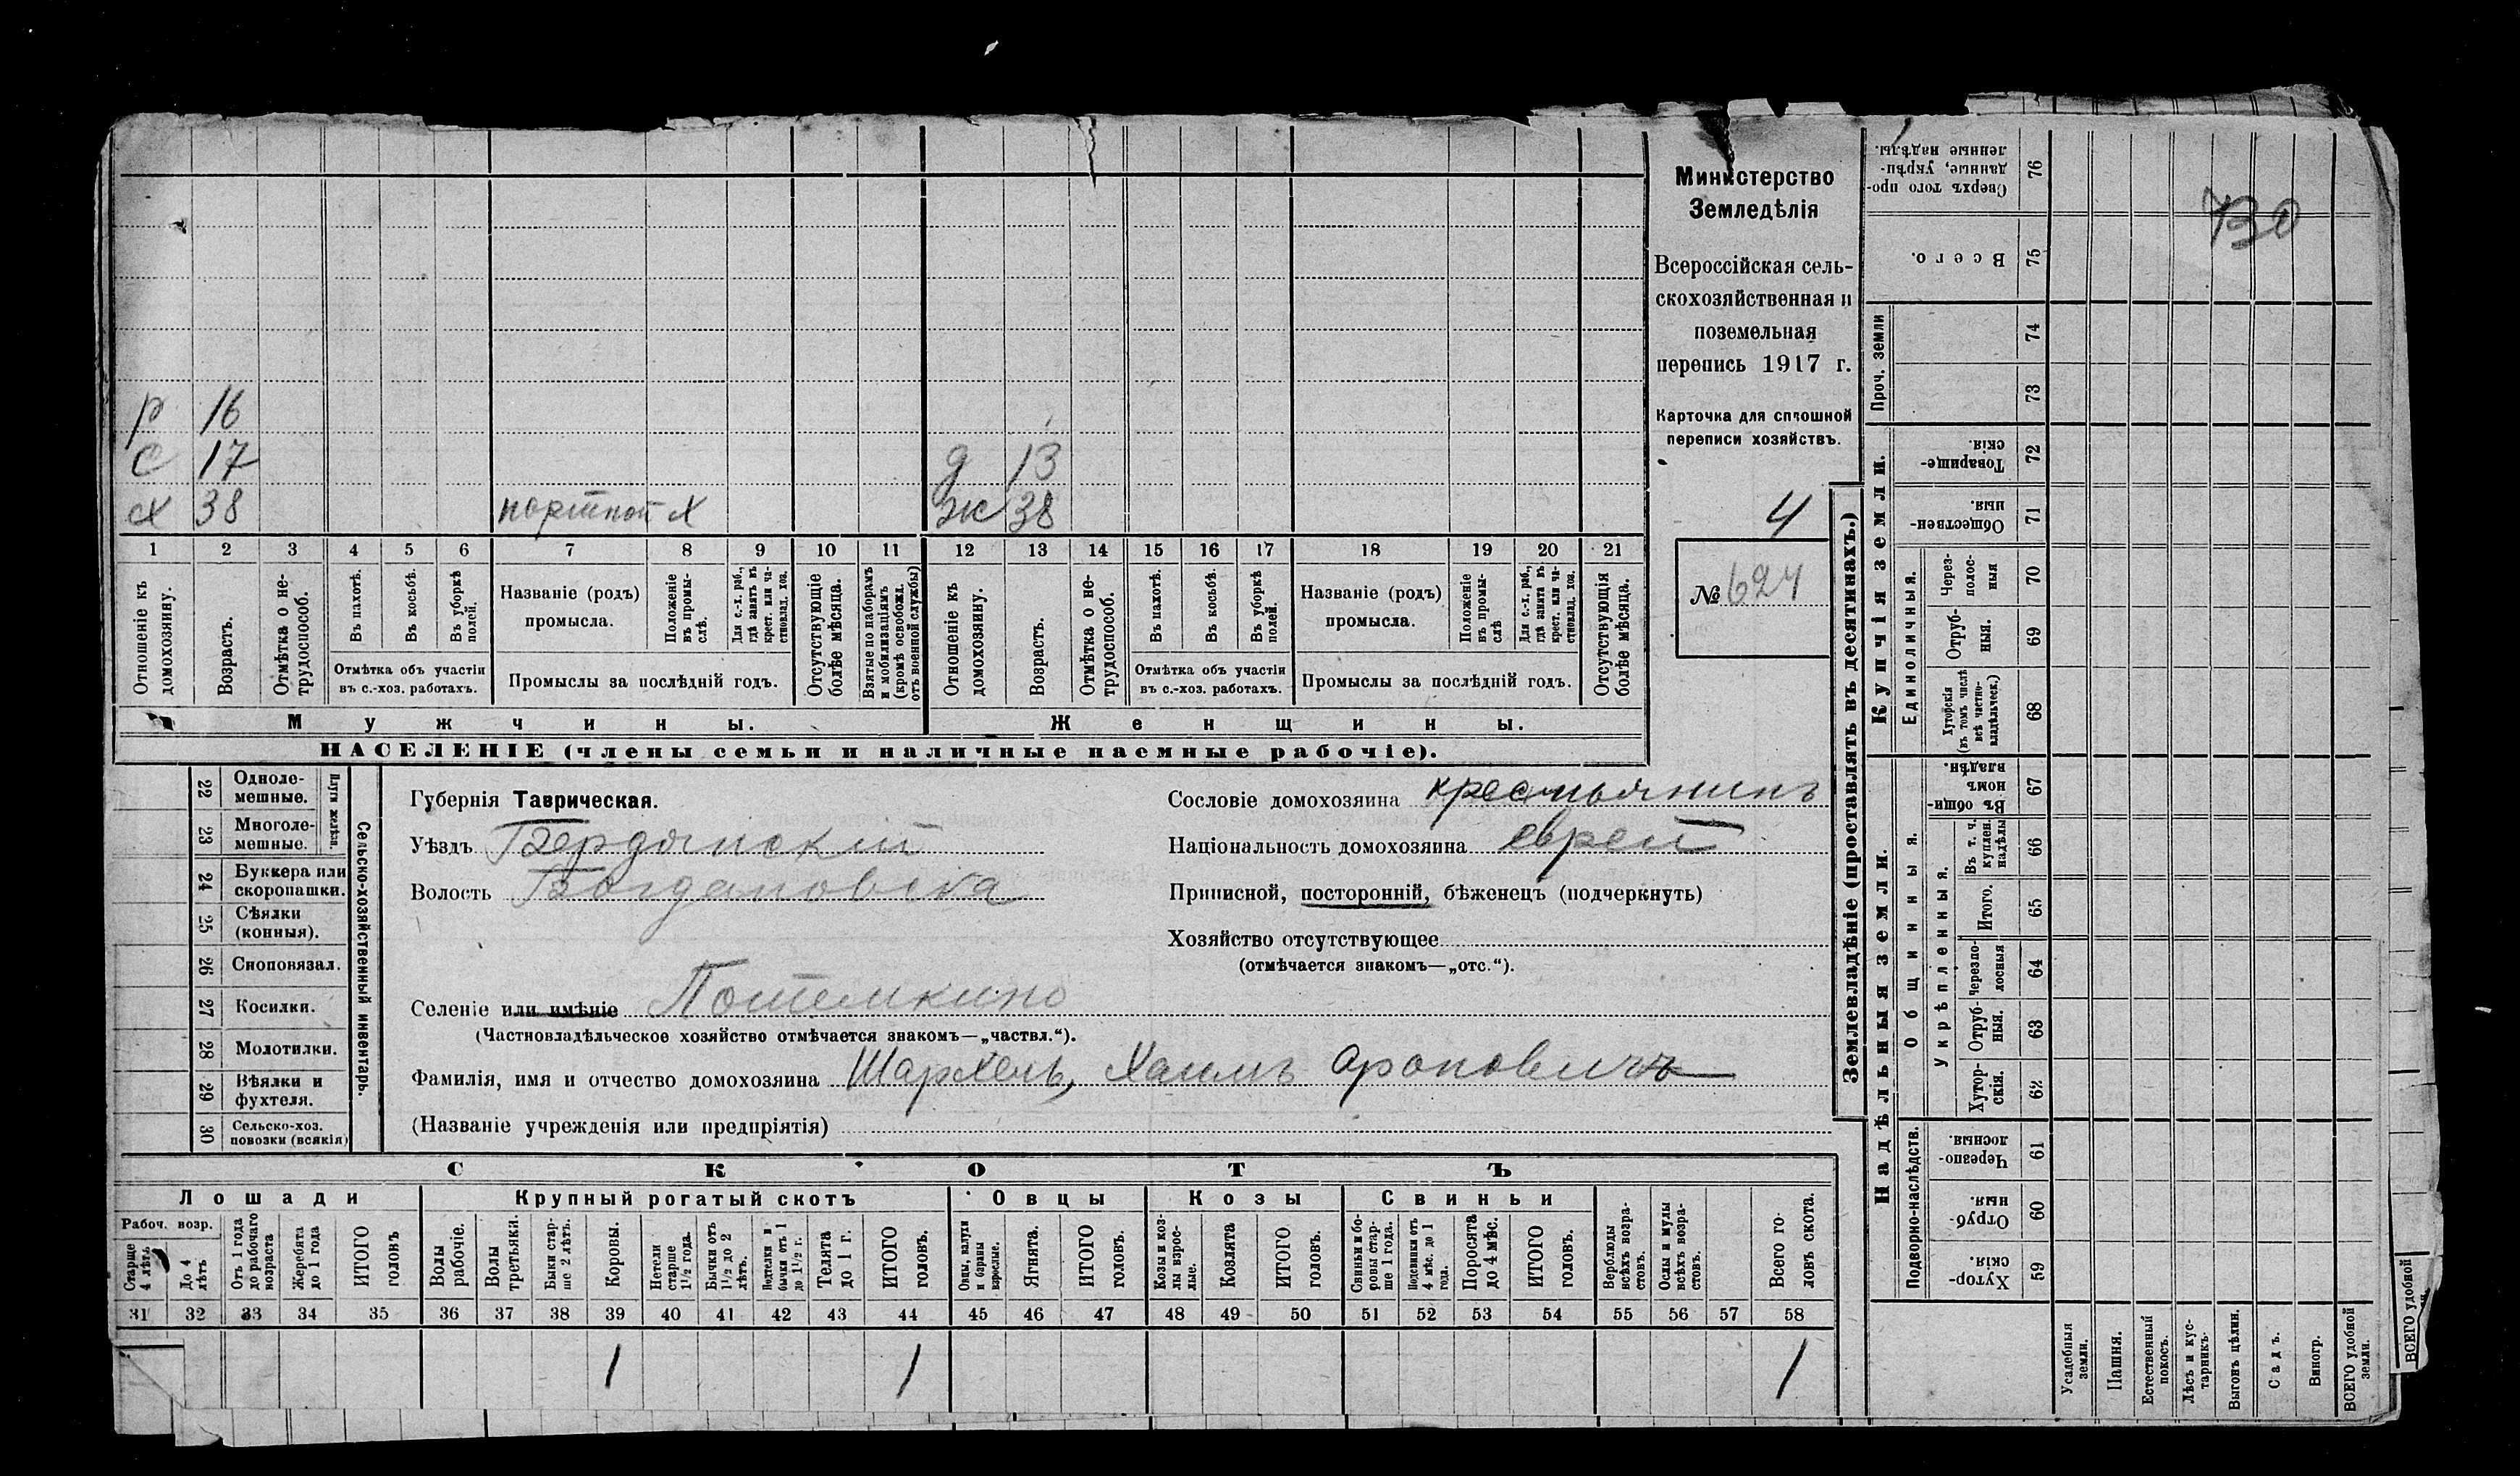 730
Министерство
Земледѣлія
Всероссійская сель-
скохозяйственная и
поземельная
перепись 1917 г.
Карточка для сплошной
переписи хозяйствъ.
4
№ 624
р 16
с 17 д 13
х 38 портной х ж 38
1 2 3 4 5 6 7 8 9 10 11 12 13 14 15 16 17 18 19 20 21
Отношеніе къ домохозяину.
Возрастъ.
Отмѣтка о не-трудоспособ.
Въ пахотѣ.
Въ косьбѣ.
Въ уборкѣ полей.
Отмѣтка объ участіи
въ с.-хоз. работахъ.
Названіе (родъ)
промысла.
Положеніе въ промы-слѣ.
Для с.-х. раб., гдѣ занятъ въ крест. или ча-стновлад. хоз.
Промыслы за послѣдній годъ.
Отсутствующіе болѣе мѣсяца.
Взятые по наборамъ и мобилизаціямъ (кромѣ освобожд. отъ военной службы)
Отношеніе къ домохозяину.
Возрастъ.
Отмѣтка о не-трудоспособ.
Въ пахотѣ.
Въ косьбѣ.
Въ уборкѣ полей.
Отмѣтка объ участіи
въ с.-хоз. работахъ.
Названіе (родъ)
промысла.
Положеніе въ промы-слѣ
Для с.-х. раб., гдѣ занята въ крест. или ча-стновлад. хоз.
Промыслы за послѣдній годъ.
Отсутствующія болѣе мѣсяца.
Мужчины. Женщины.
НАСЕЛЕНІЕ (члены семьи и наличные наемные рабочіе).
22 Одноле-мешные.
23 Многоле-мешные.
Плуги желѣзн.
24 Буккера или скоропашки.
25 Сѣялки (конныя).
26 Сноповязал.
27 Косилки.
28 Молотилки.
29 Вѣялки и фухтеля.
30 Сельско-хоз. повозки (всякія)
Сельско-хозяйственный инвентарь.
Губернія Таврическая.
Уѣздъ Бердянскій
Волость Богдановска
Селеніе или имѣніе Потемкино
(Частновладѣльческое хозяйство отмѣчается знакомъ—„частвл.“).
Фамилія, имя и отчество домохозяина Шархель, Хаимъ Ароновичъ
(Названіе учрежденія или предпріятія)
Сословіе домохозяина крестьянинъ
Національность домохозяина еврей
Приписной, посторонній, бѣженецъ (подчеркнуть)
Хозяйство отсутствующее
(отмѣчается знакомъ—„отс.“).
СКОТЪ
Лошади Крупный рогатый скотъ Овцы Козы Свиньи
Рабоч. возр.
Старше 4 лѣтъ
До 4 лѣтъ
Отъ 1 года до рабочаго возраста
Жеребята до 1 года
ИТОГО головъ
Волы рабочіе.
Волы третьяки.
Быки стар-ше 2 лѣтъ.
Коровы.
Нетели старше 1½ года.
Бычки отъ 1½ до 2 лѣтъ.
Нетелки и бычки отъ 1 до 1½ г.
Телята до 1 г.
ИТОГО головъ.
Овцы, валухи и бараны взрослые.
Ягнята.
ИТОГО головъ.
Козы и коз-лы взрос-лые.
Козлята
ИТОГО головъ.
Свиньи и бо-ровы стар-ше 1 года.
Подсвинки отъ 4 мѣс. до 1 года.
Поросята до 4 мѣс.
ИТОГО головъ.
Верблюды всѣхъ возра-стовъ.
Ослы и мулы всѣхъ возра-стовъ.
Всего го-ловъ скота.
31 32 33 34 35 36 37 38 39 40 41 42 43 44 45 46 47 48 49 50 51 52 53 54 55 56 57 58
1 1 1
Землевладѣніе (проставлять въ десятинахъ.)
Купчія земли.
Надѣльныя земли.
76 Сверхъ того про-данные, укрѣп-ленные надѣлы.
75 Всего.
Проч. земли
74
73
72 Товарище-скія.
71 Обществен-ныя.
Единоличныя.
70 Через-полос-ныя
69 Отруб-ныя.
68 Хуторскія (въ томъ числѣ всѣ частно-владѣльческ.)
Общинныя.
67 Въ общин-номъ владѣн.
Укрѣпленныя.
66 Въ т. ч. куплен. надѣлы
65 Итого.
64 Черезпо-лосныя
63 Отруб-ныя.
62 Хутор-скія.
Подворно-наслѣдств.
61 Черезпо-лосныя.
60 Отруб-ныя.
59 Хутор-скія.
Усадебныя земли.
Пашня.
Естественный покосъ.
Лѣсъ и кус-тарникъ.
Выгонъ цѣлин.
Садъ.
Виногр.
ВСЕГО удобной земли.
ВСЕГО удобной